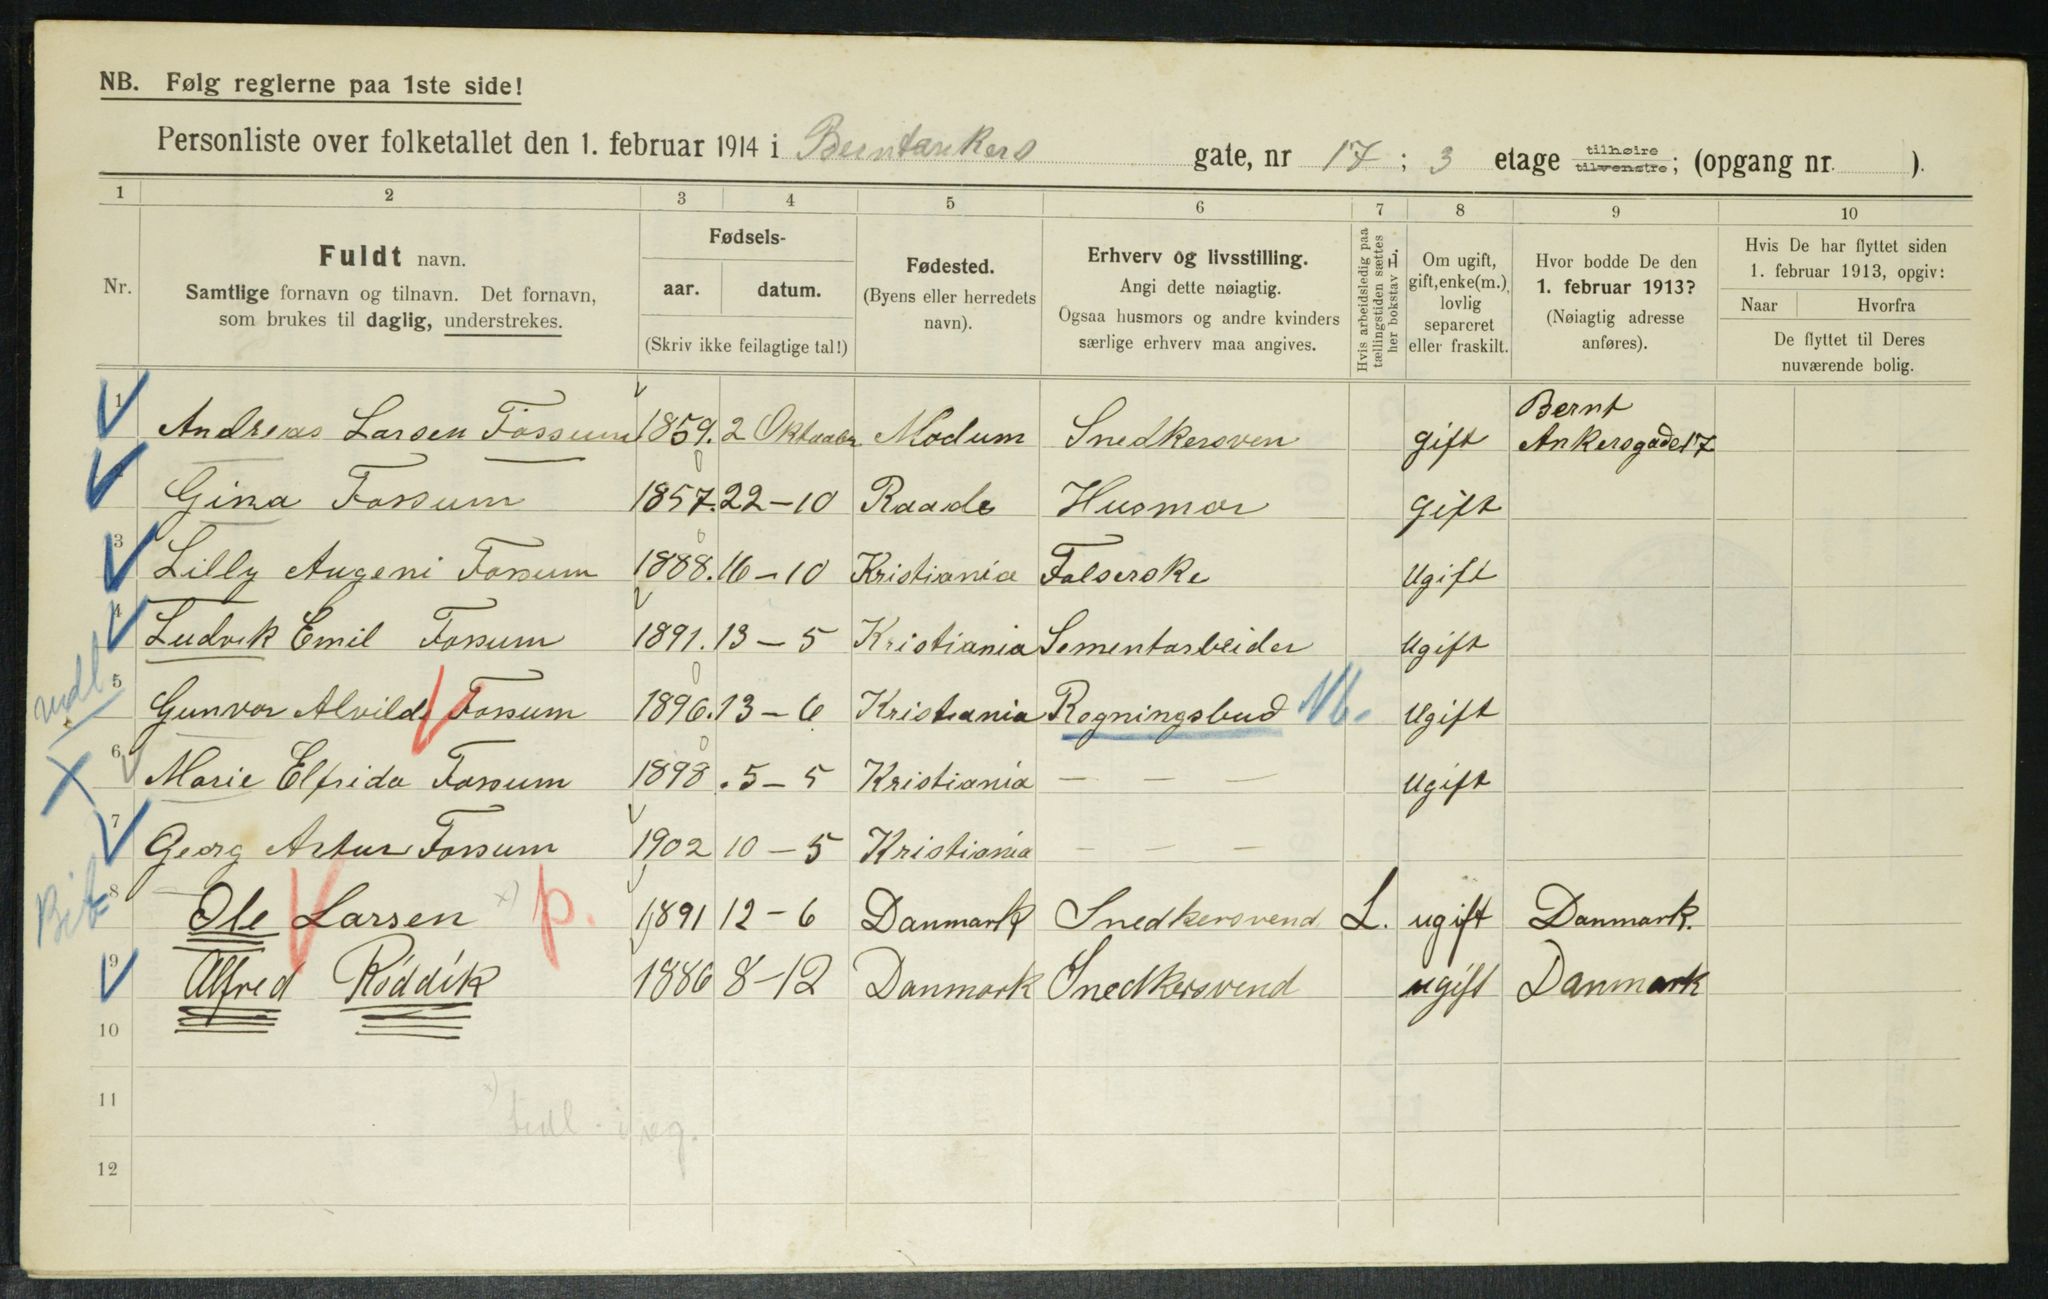 NB. Følg reglerne paa 1ste side!
Personliste over folketallet den 1. februar 1914 i Berntankers gate, nr 17 ; 3 etage tilhøire tilvenstre; (opgang nr. ).
1 2 3 4 5 6 7 8 9 10
Nr.
Fuldt navn.
Samtlige fornavn og tilnavn. Det fornavn,
som brukes til daglig, understrekes.
Fødsels-
aar. datum.
(Skriv ikke feilagtige tal!)
Fødested.
(Byens eller herredets
navn).
Erhverv og livsstilling.
Angi dette nøiagtig.
Ogsaa husmors og andre kvinders
særlige erhverv maa angives.
Hvis arbeidsledig paa
tællingstiden sættes
her bokstav L.
Om ugift,
gift, enke(m.),
lovlig
separeret
eller fraskilt.
Hvor bodde De den
1. februar 1913?
(Nøiagtig adresse
anføres).
Hvis De har flyttet siden
1. februar 1913, opgiv:
Naar Hvorfra
De flyttet til Deres
nuværende bolig.
1 Andreas Larsen Fossum 1859. 2 Oktober Modum Snedkersven gift Bernt
Ankersgade 17
Gina Fossum 1857. 22-10 Raade Husmor gift
3 Lilly Augeni Fossum 1888. 16-10 Kristiania Falserske Ugift
4 Ludvik Emil Fossum 1891. 13-5 Kristiania Sementarbeider Ugift
5 Gunvor Alvilde Fossum 1896. 13-6 Kristiania Regningsbud Nb. Ugift
6 Marie Elfrida Fossum 1898. 5-5 Kristiania - - - Ugift
7 Georg Artur Fossum 1902 10-5 Kristiania - - -
8 Ole Larsen x) p. 1891 12-6 Danmark Snedkersvend L. ugift Danmark.
9 Alfred Röddik 1886 8-12 Danmark Snedkersvend ugift Danmark
10
11
12